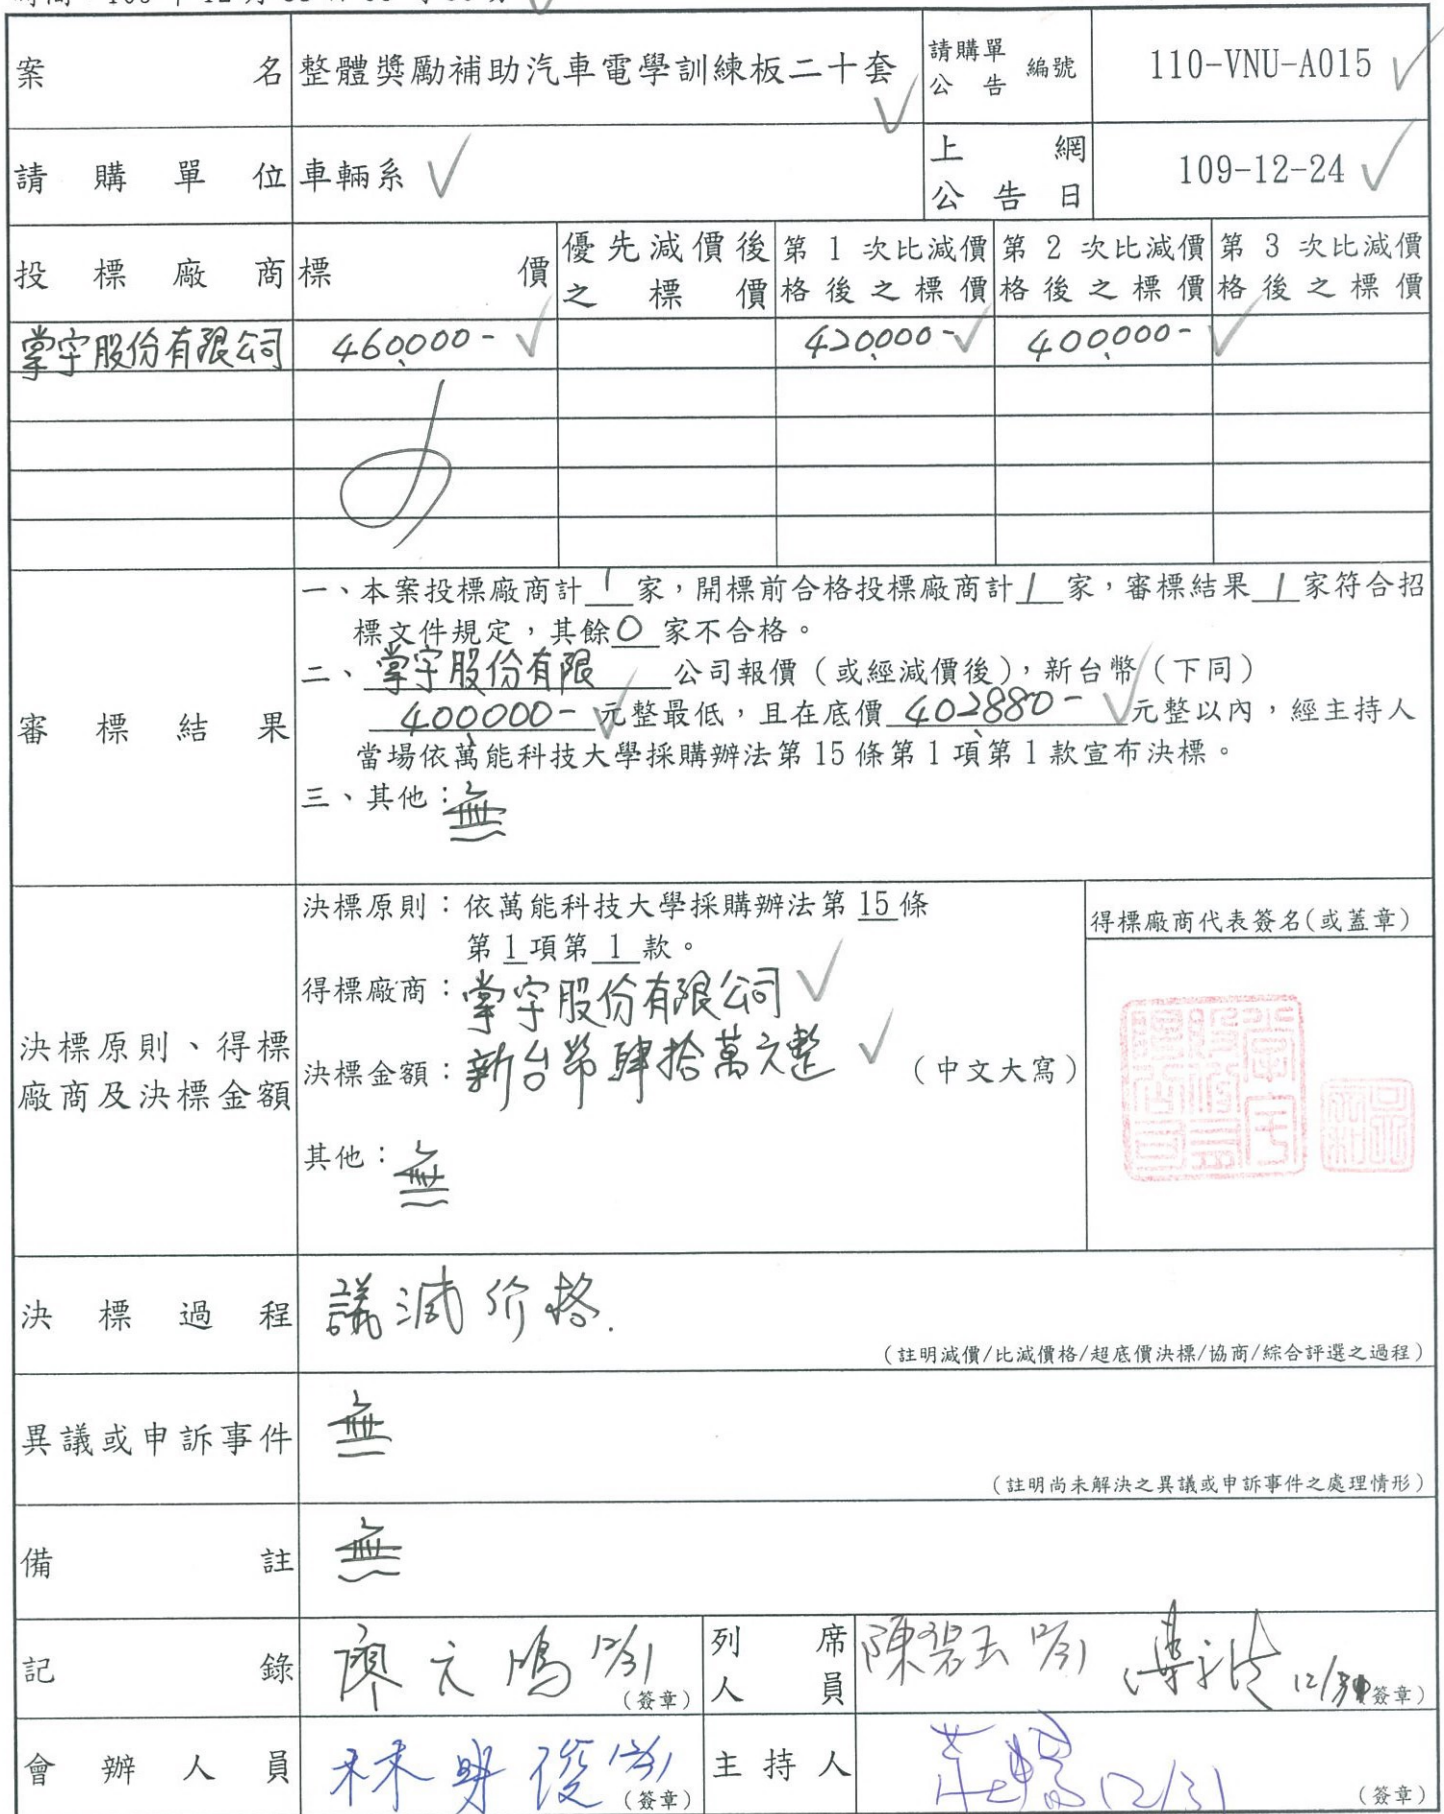 案名 整體獎勵補助汽車電學訓練板二十套 請購單公告編號 110-VNU-A015
請購單位 車輛系 上網公告日 109-12-24
投標廠商 標價 優先減價後之標價 第1次比減價格後之標價 第2次比減價格後之標價 第3次比減價格後之標價
掌宇股份有限公司 460000- 420000- 400000-
審標結果
一、本案投標廠商計1家，開標前合格投標廠商計1家，審標結果1家符合招
標文件規定，其餘0家不合格。
二、掌宇股份有限公司報價（或經減價後），新台幣（下同）
400000-元整最低，且在底價402880-元整以內，經主持人
當場依萬能科技大學採購辦法第15條第1項第1款宣布決標。
三、其他：無
決標原則、得標廠商及決標金額
決標原則：依萬能科技大學採購辦法第15條
第1項第1款。
得標廠商：掌宇股份有限公司
決標金額：新台幣肆拾萬元整（中文大寫）
其他：無
得標廠商代表簽名(或蓋章)
掌宇股份有限公司
決標過程 議減价格.
（註明減價/比減價格/超底價決標/協商/綜合評選之過程）
異議或申訴事件 無
（註明尚未解決之異議或申訴事件之處理情形）
備註 無
記錄 廖元鴻 12/31（簽章） 列席人員 陳碧玉 12/31 12/31（簽章）
會辦人員 林明俊 12/31（簽章） 主持人 12/31（簽章）